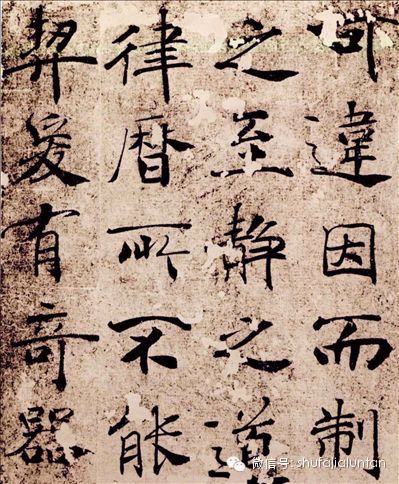 可違因而制
之至静之道
律曆所不能
契爰有竒器
微信号: shufajialuntan